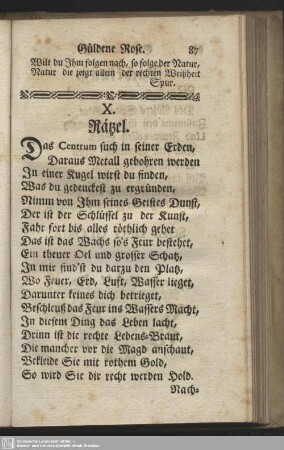 Güldene Rose. 87
Wilt du Ihm folgen nach, so folge der Natur,
Natur die zeigt allein der rechten Weißheit
Spur.
X.
Rätzel.
Das Centrum such in seiner Erden,
Daraus Metall gebohren werden
In einer Kugel wirst du finden,
Was du gedenckest zu ergründen,
Nimm von Ihm seines Geistes Dunst,
Der ist der Schlüssel zu der Kunst,
Fahr fort bis alles röthlich gehet
Das ist das Wachs so's Feur bestehet,
Ein theuer Oel und grosser Schatz,
In mir find'st du darzu den Platz,
Wo Feuer, Erd, Luft, Wasser lieget,
Darunter keines dich betrieget,
Beschleuß das Feur ins Wassers Macht,
In diesem Ding das Leben lacht,
Drinn ist die rechte Lebens-Braut,
Die mancher vor die Magd anschaut,
Bekleide Sie mit rothem Gold,
So wird Sie dir recht werden Hold.
Nach-